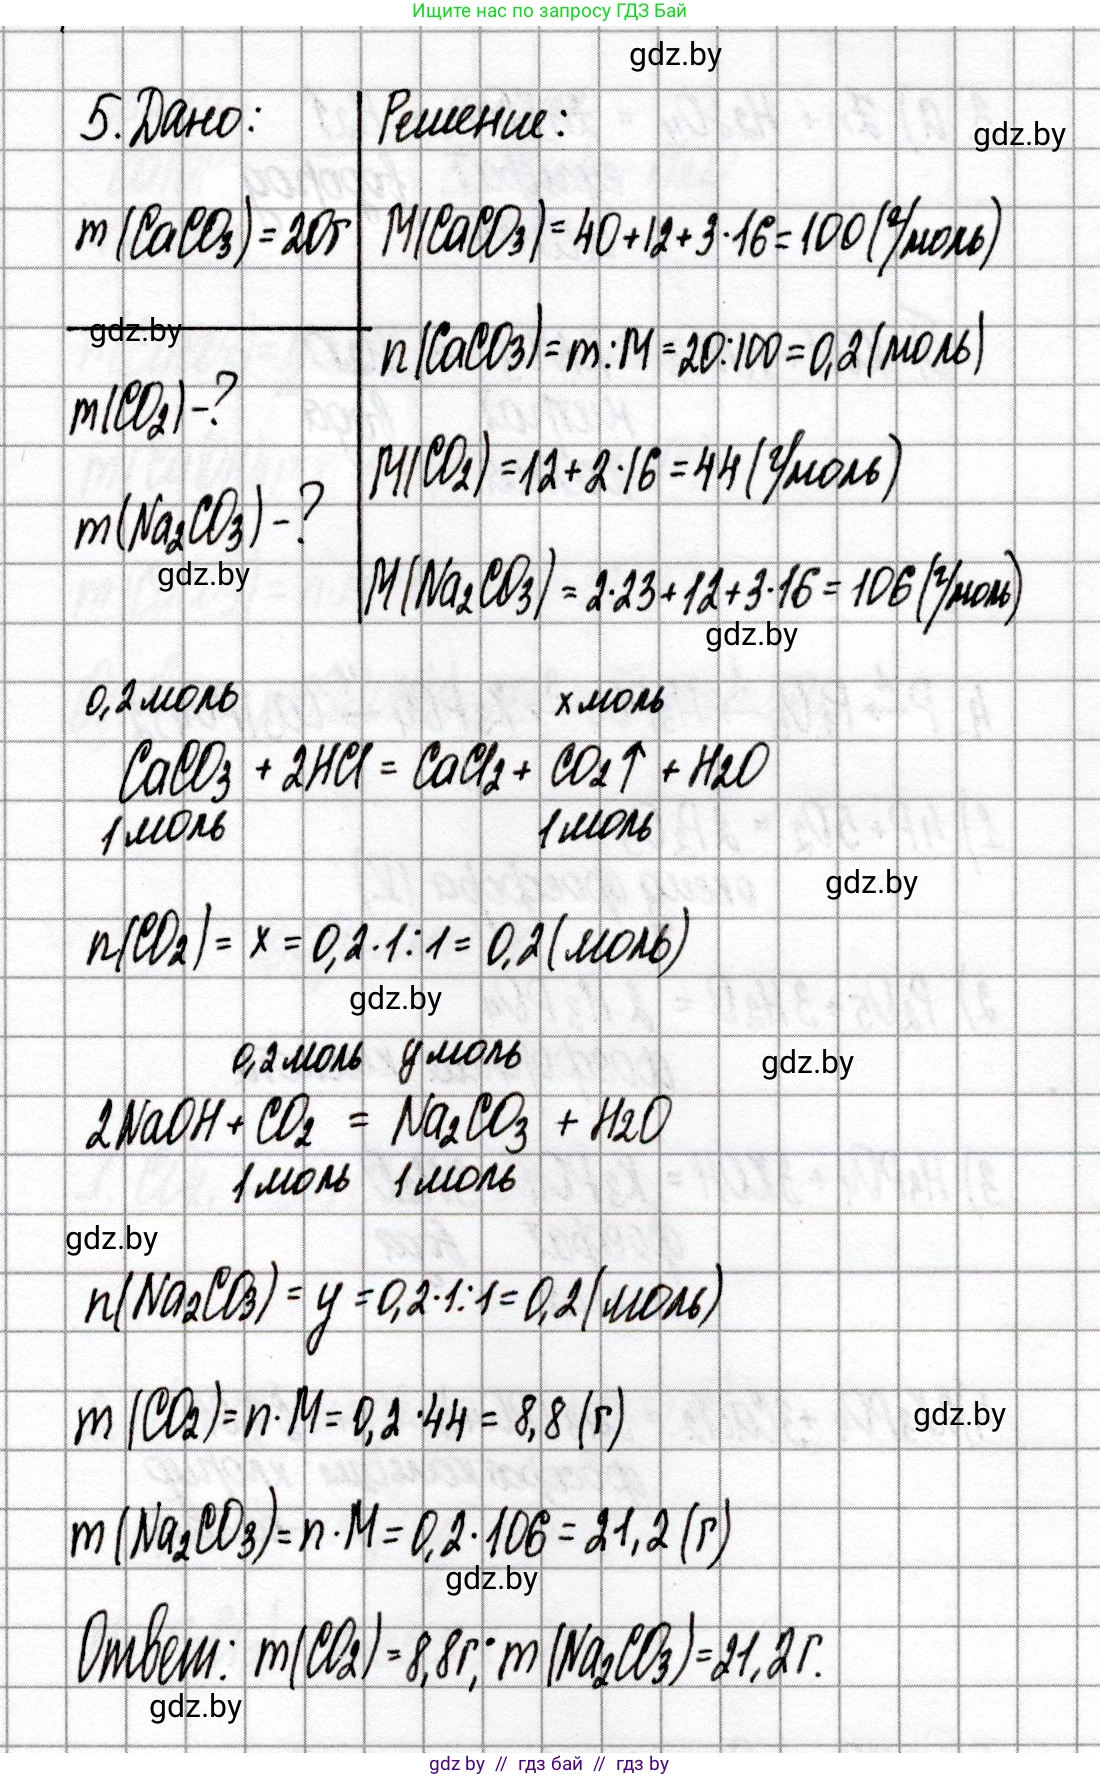 Ищите нас по запросу ГДЗ Бай
gdz.by
5. Дано:
Решение:
gdz.by
m(CaCO₃) = 20г
M(CaCO₃) = 40+12+3·16 = 100 (г/моль)
gdz.by
n(CaCO₃) = m:M = 20:100 = 0,2 (моль)
m(CO₂) - ?
M(CO₂) = 12+2·16 = 44 (г/моль)
m(Na₂CO₃) - ?
gdz.by
M(Na₂CO₃) = 2·23+12+3·16 = 106 (г/моль)
gdz.by
0,2 моль x моль
CaCO₃ + 2HCl = CaCl₂ + CO₂↑ + H₂O
1 моль 1 моль
gdz.by
n(CO₂) = x = 0,2·1:1 = 0,2 (моль)
gdz.by
0,2 моль y моль
gdz.by
2NaOH + CO₂ = Na₂CO₃ + H₂O
1 моль 1 моль
gdz.by
n(Na₂CO₃) = y = 0,2·1:1 = 0,2 (моль)
m(CO₂) = n·M = 0,2·44 = 8,8 (г)
gdz.by
m(Na₂CO₃) = n·M = 0,2·106 = 21,2 (г)
gdz.by
Ответ: m(CO₂) = 8,8г; m(Na₂CO₃) = 21,2г.
gdz.by
gdz by // гдз бай // гдз by